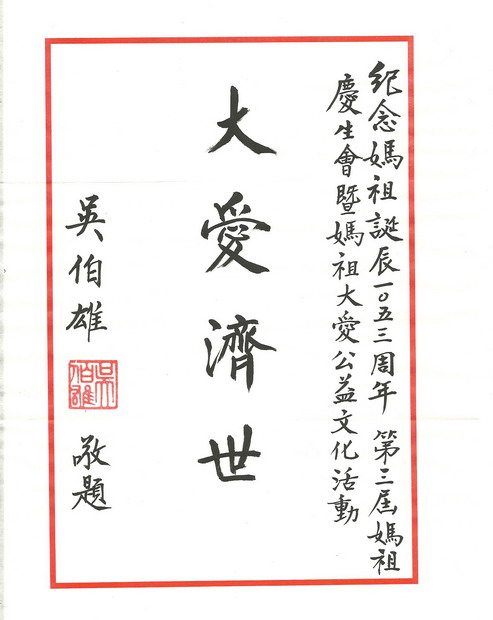 紀念媽祖誕辰一〇五三周年 第三屆媽祖
慶生會暨媽祖大愛公益文化活動
大愛濟世
吳伯雄
吳伯雄
敬題